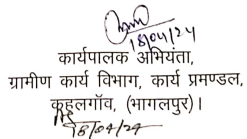 18/04/24
कार्यपालक अभियंता,
ग्रामीण कार्य विभाग, कार्य प्रमण्डल,
कहलगाँव, (भागलपुर)।
18/04/24